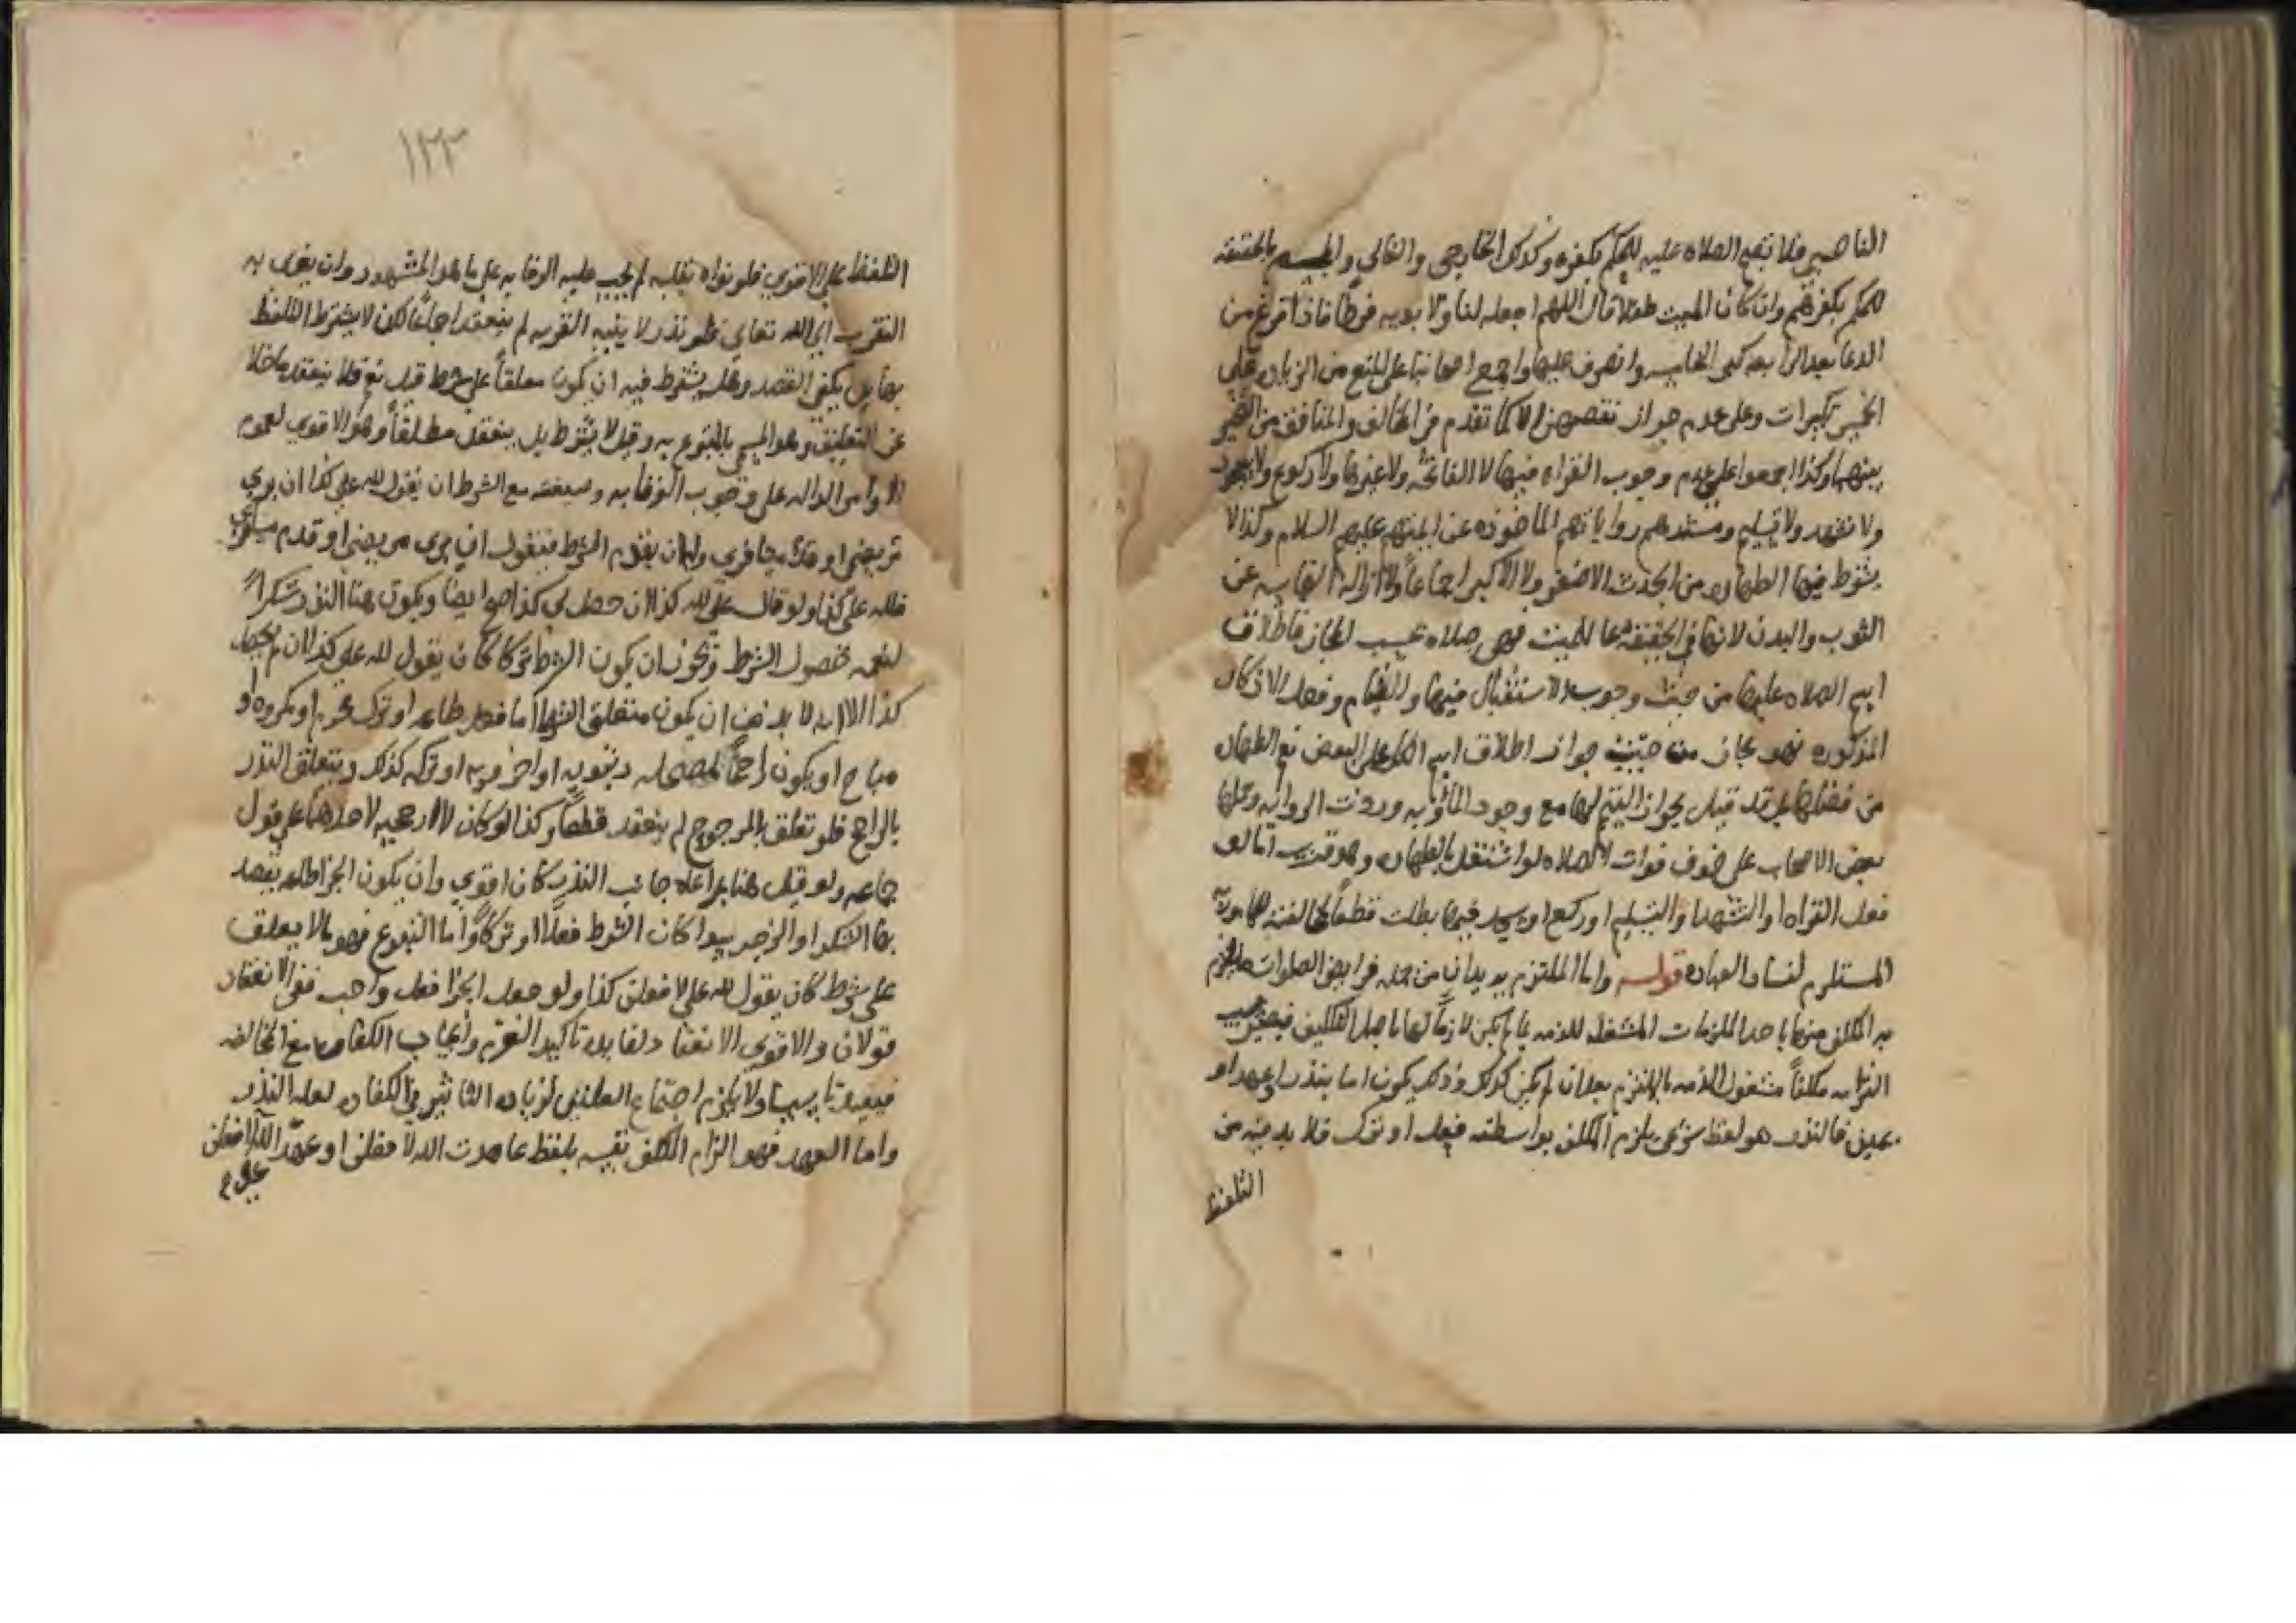 الناصبي فلا تصح الصلاه عليه للحكم بكفره وكذلك الخارجي والغالي والمجسم بالحقيقه
للحكم بكفرهم وان كان الميت طفلا قال اللهم اجعله لنا ولابويه فرطا فاذا فرغ من
الدعا بعد الرابعه كبر الخامسه وانصرف عليها واجمع اصحابنا على المنع من الزياده على
الخمس تكبيرات وعلى عدم جواز نقصهن الا كما تقدم في المخالف والمنافق من التخير
بينهما وكذا اجمعوا على عدم وجوب القراه فيها لا الفاتحه ولا غيرها ولا ركوع ولا سجود
ولا تشهد ولا تسليم ومستندهم رواياتهم الماخوذه عن ايمتهم عليهم السلام وكذا لا
يشترط فيها الطهاره من الحدث الاصغر ولا الاكبر اجماعاً ولا ازالة النجاسه عن
الثوب والبدن لانها في الحقيقه دعا للميت فهي صلاه بحسب المجاز فاطلاق
اسم الصلاه عليها من حيث وجوب الاستقبال فيها والقيام وفعل الاذكار
المذكوره فهو مجاز من حيث جواز اطلاق اسم الكل على البعض نعم الطهاره
من فضلها بل قد قيل بجواز التيمم لها مع وجود الماء وبه وردت الروايه وحملها
بعض الاصحاب على خوف فوات الصلاه لو اشتغل بالطهاره وهو قريب اما لو
فعل القراه او التشهد او التسليم او ركع او سجد فيها بطلت قطعاً لمخالفته
المستلزم لفساد العباده قوله واما الملتزم يريد ان من جمله فرايض الصلوات ما يلتزم
به المكلف منها باحد الملزمات المشغله للذمه بما لم يكن لازماً لها باصل التكليف فيصير بسبب
التزامه مكلفاً مشغول الذمه بالملتزم بعد ان لم يكن كذلك وذلك يكون اما بنذر او عهد او
يمين فالنذر هو لفظ شرعي يلزم المكلف بواسطته فعل او ترك فلا بد فيه من
التلفظ
١٢٣
التلفظ على الاقوى فلو نواه بقلبه لم يجب عليه الوفا به على ما هو المشهور وان يقصد به
التقرب الى الله تعالى فلو نذر لا بنيه القربه لم ينعقد اجماعاً لكن لا يشترط التلفظ
بها بل يكفي القصد وهل يشترط فيه ان يكون معلقاً على شرط قيل نعم فلا ينعقد ما خلا
عن التعليق وهو المسمى بالمتبرع به وقيل لا يشترط بل ينعقد مطلقاً وهو الاقوى لعموم
الاوامر الداله على وجوب الوفا به وصيغته مع الشرط ان يقول لله علي كذا ان بري
مريضي او قدم مسافري وله ان يقدم الشرط فيقول ان بري مريضي او قدم مسافري
فلله علي كذا ولو قال علي لله كذا ان حصل لي كذا صح ايضاً ويكون هنا النذر شكراً
لنعمه حصول الشرط ويجوز ان يكون الشرط تركا كان يقول لله علي كذا ان لم يحصل
كذا الا انه لا بد من ان يكون متعلق النذر اما فعل طاعه او ترك محرم او مكروه او
مباح او يكون راجحاً لمصلحه دنيويه او اخرويه او تركه كذلك ويتعلق النذر
بالراجح فلو تعلق بالمرجوح لم ينعقد قطعاً وكذا لو كان لا ارجحيه لاحدهما على قول
جماعه ولو قيل هنا بمراعاه جانب النذر كان اقوى وان يكون الجزا طاعه يقصد
بها الشكر او الزجر سوا كان الشرط فعلاً او تركاً واما التبرع فهو ما لا يعلق
على شرط كان يقول لله علي لافعلن كذا ولو جعل الجزا فعل واجب ففي الانعقاد
قولان والاقوى الانعقاد لفايده تاكيد العزم وايجاب الكفاره مع المخالفه
ولا يلزم اجتماع العلتين لزياده التاثير في الكفاره لعله النذر
واما العهد فهو الزام المكلف نفسه بلفظ عاهدت الله لافعلن او عهد الله لافعلن